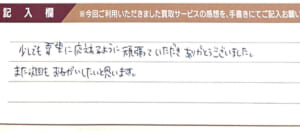 記入欄
※今回ご利用いただきました買取サービスの感想を、手書きにてご記入お願い
少しでも要望に応えるように頑張っていただきありがとうございました。
また次回もおねがいしたいと思います。